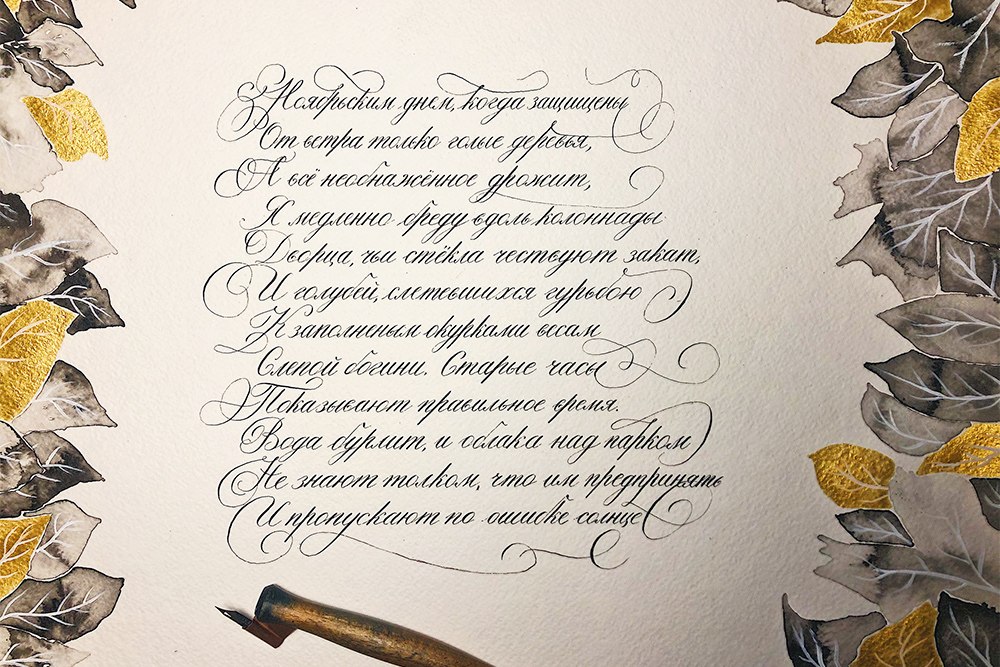 Ноябрьским днем, когда защищены
От ветра только голые деревья,
А всё необнажённое дрожит,
Я медленно бреду вдоль колоннады
Дворца, чьи стёкла чествуют закат,
И голубей, слетевшихся гурьбою
К заполненым окурками весам
Слепой богини. Старые часы
Показывают правильное время.
Вода бурлит, и облака над парком
Не знают толком, что им предпринять
И пропускают по ошибке солнце